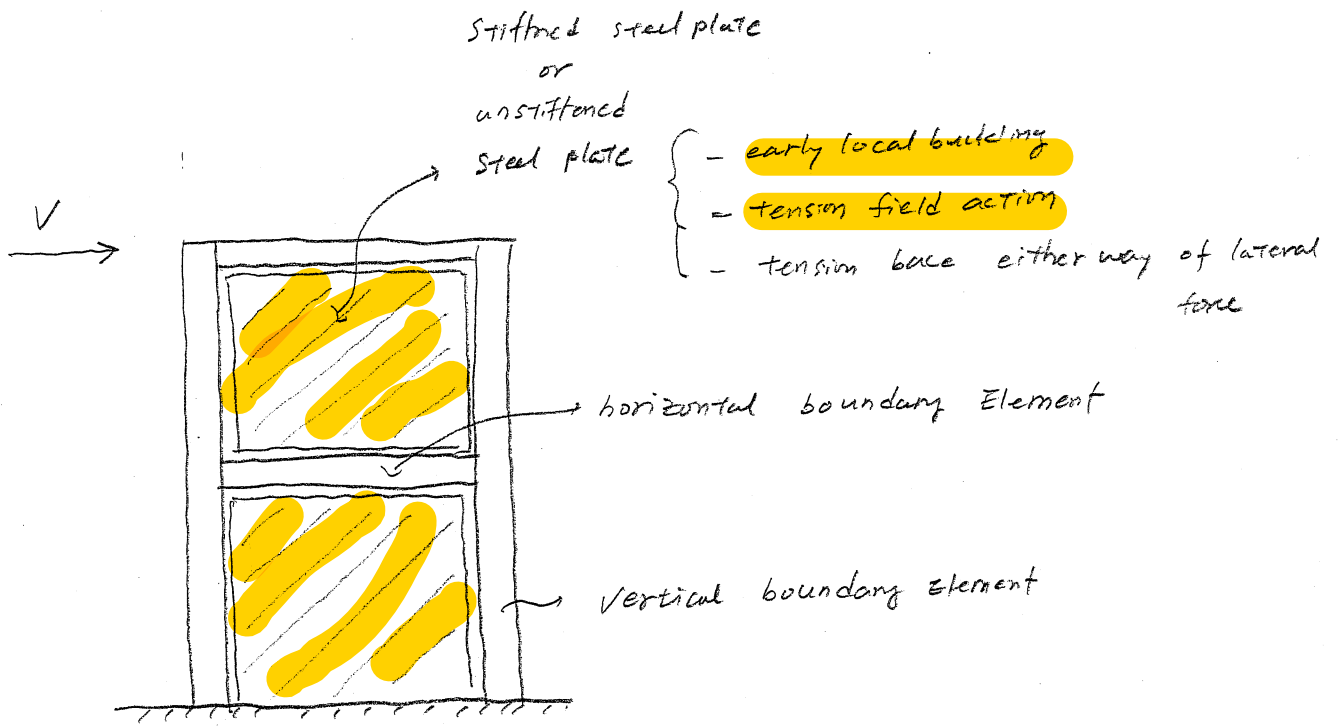 Stiffned steel plate
or
unstiffened
steel plate
- early local buckling
- tension field action
- tension bace either way of lateral
force
V
horizontal boundary Element
Vertical boundary Element